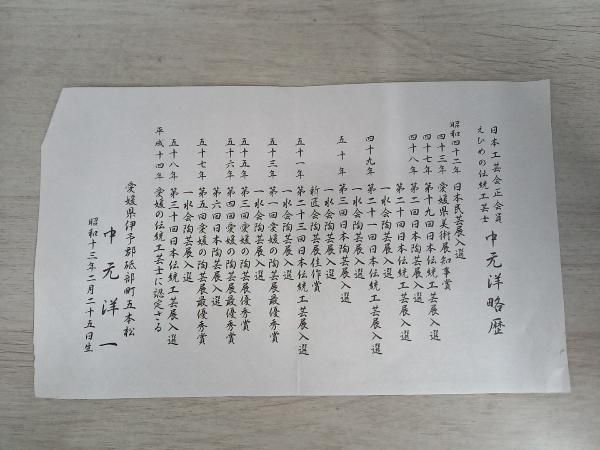 日本工芸会正会員
えひめの伝統工芸士
中元洋略歴
昭和四十二年 日本民芸展入選
四十三年 愛媛県美術展知事賞
四十七年 第十九回日本伝統工芸展入選
四十八年 第二回日本陶芸展入選
第二十回日本伝統工芸展入選
一水会陶芸展入選
四十九年 第二十一回日本伝統工芸展入選
一水会陶芸展入選
五十年 第三回日本陶芸展入選
一水会陶芸展入選
新匠会陶芸展佳作賞
五十一年 第二十三回日本伝統工芸展入選
一水会陶芸展入選
五十三年 第一回愛媛の陶芸展最優秀賞
一水会陶芸展入選
五十五年 第三回愛媛の陶芸展優秀賞
五十六年 第四回愛媛の陶芸展最優秀賞
第六回日本陶芸展入選
五十七年 第五回愛媛の陶芸展最優秀賞
一水会陶芸展入選
五十八年 第三十回日本伝統工芸展入選
平成十四年 愛媛の伝統工芸士に認定さる
愛媛県伊予郡砥部町五本松
中元洋一
昭和十三年二月二十五日生